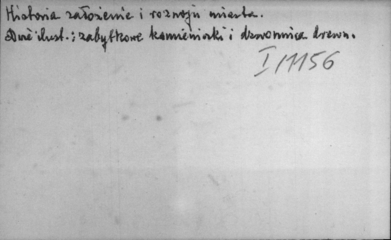 Historia założenie i rozwoju miasta.
Dwie ilust.: zabytkowe kamieniczki i dzwonnica drewn.
I/11156